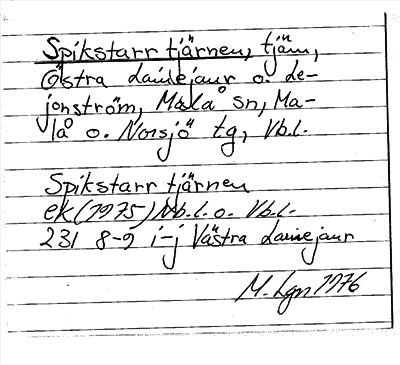 Spikstarr tjärnen, tjärn,
Östra Lainejaur o. de-
jonström, Mala sn, Ma-
lå o. Norsjö tg, Vb.l.
Spikstarr tjärnen
ek (1975) Nb.l. o. Vb.l.
231 8-9 i-j Västra Lainejaur
M. Lgn 1976